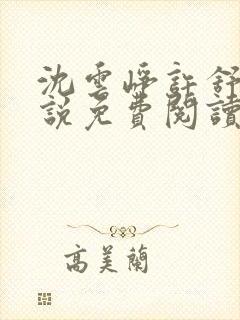 沈雲崢許舒
說免費閱讀
高美蘭